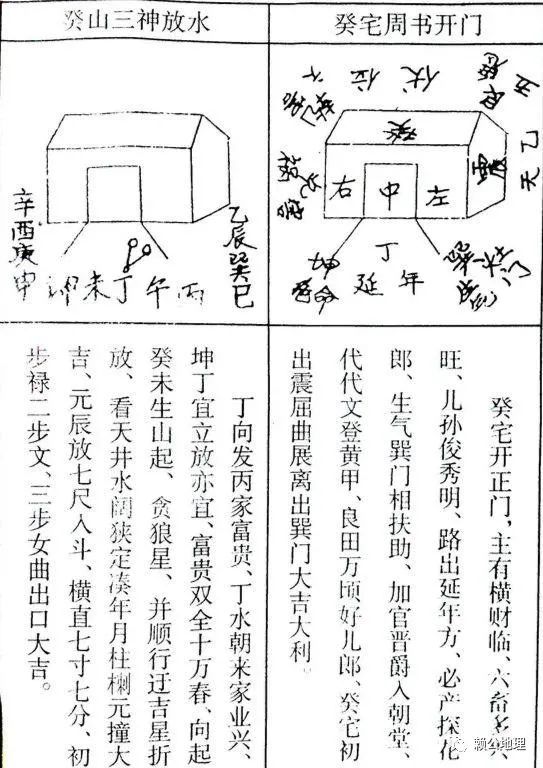 癸宅周书开门
伏位
癸
右
中
左
丁
延年
癸宅开正门，主有横财临、六畜多兴
旺、儿孙俊秀明、路出延年方、必产探花
郎、生气巽门相扶助、加官晋爵入朝堂、
代代文登黄甲、良田万顷好儿郎、癸宅初
出震屈曲展离出巽门大吉大利。
癸山三神放水
辛酉庚申
坤未丁午丙
乙辰巽巳
丁向发丙家富贵、丁水朝来家业兴、
坤丁宜立放亦宜、富贵双全十万春、向起
癸未生山起、贪狼星、并顺行迂吉星折
放、看天井水阔狭定凑年月柱栵元撞大
吉、元辰放七尺入斗、横直七寸七分、初
步禄二步文、三步女曲出口大吉。
赖公地理